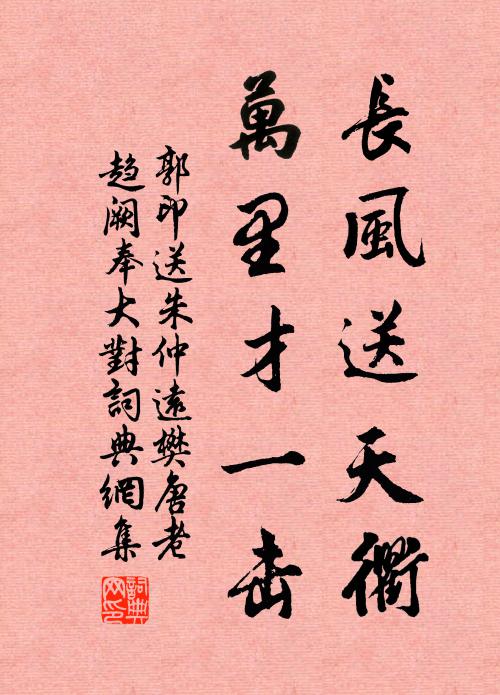 長風送天衢
萬里才一击
郭印送朱仲遠樊唐老
趋阙奉大對詞典網集
詞典網印